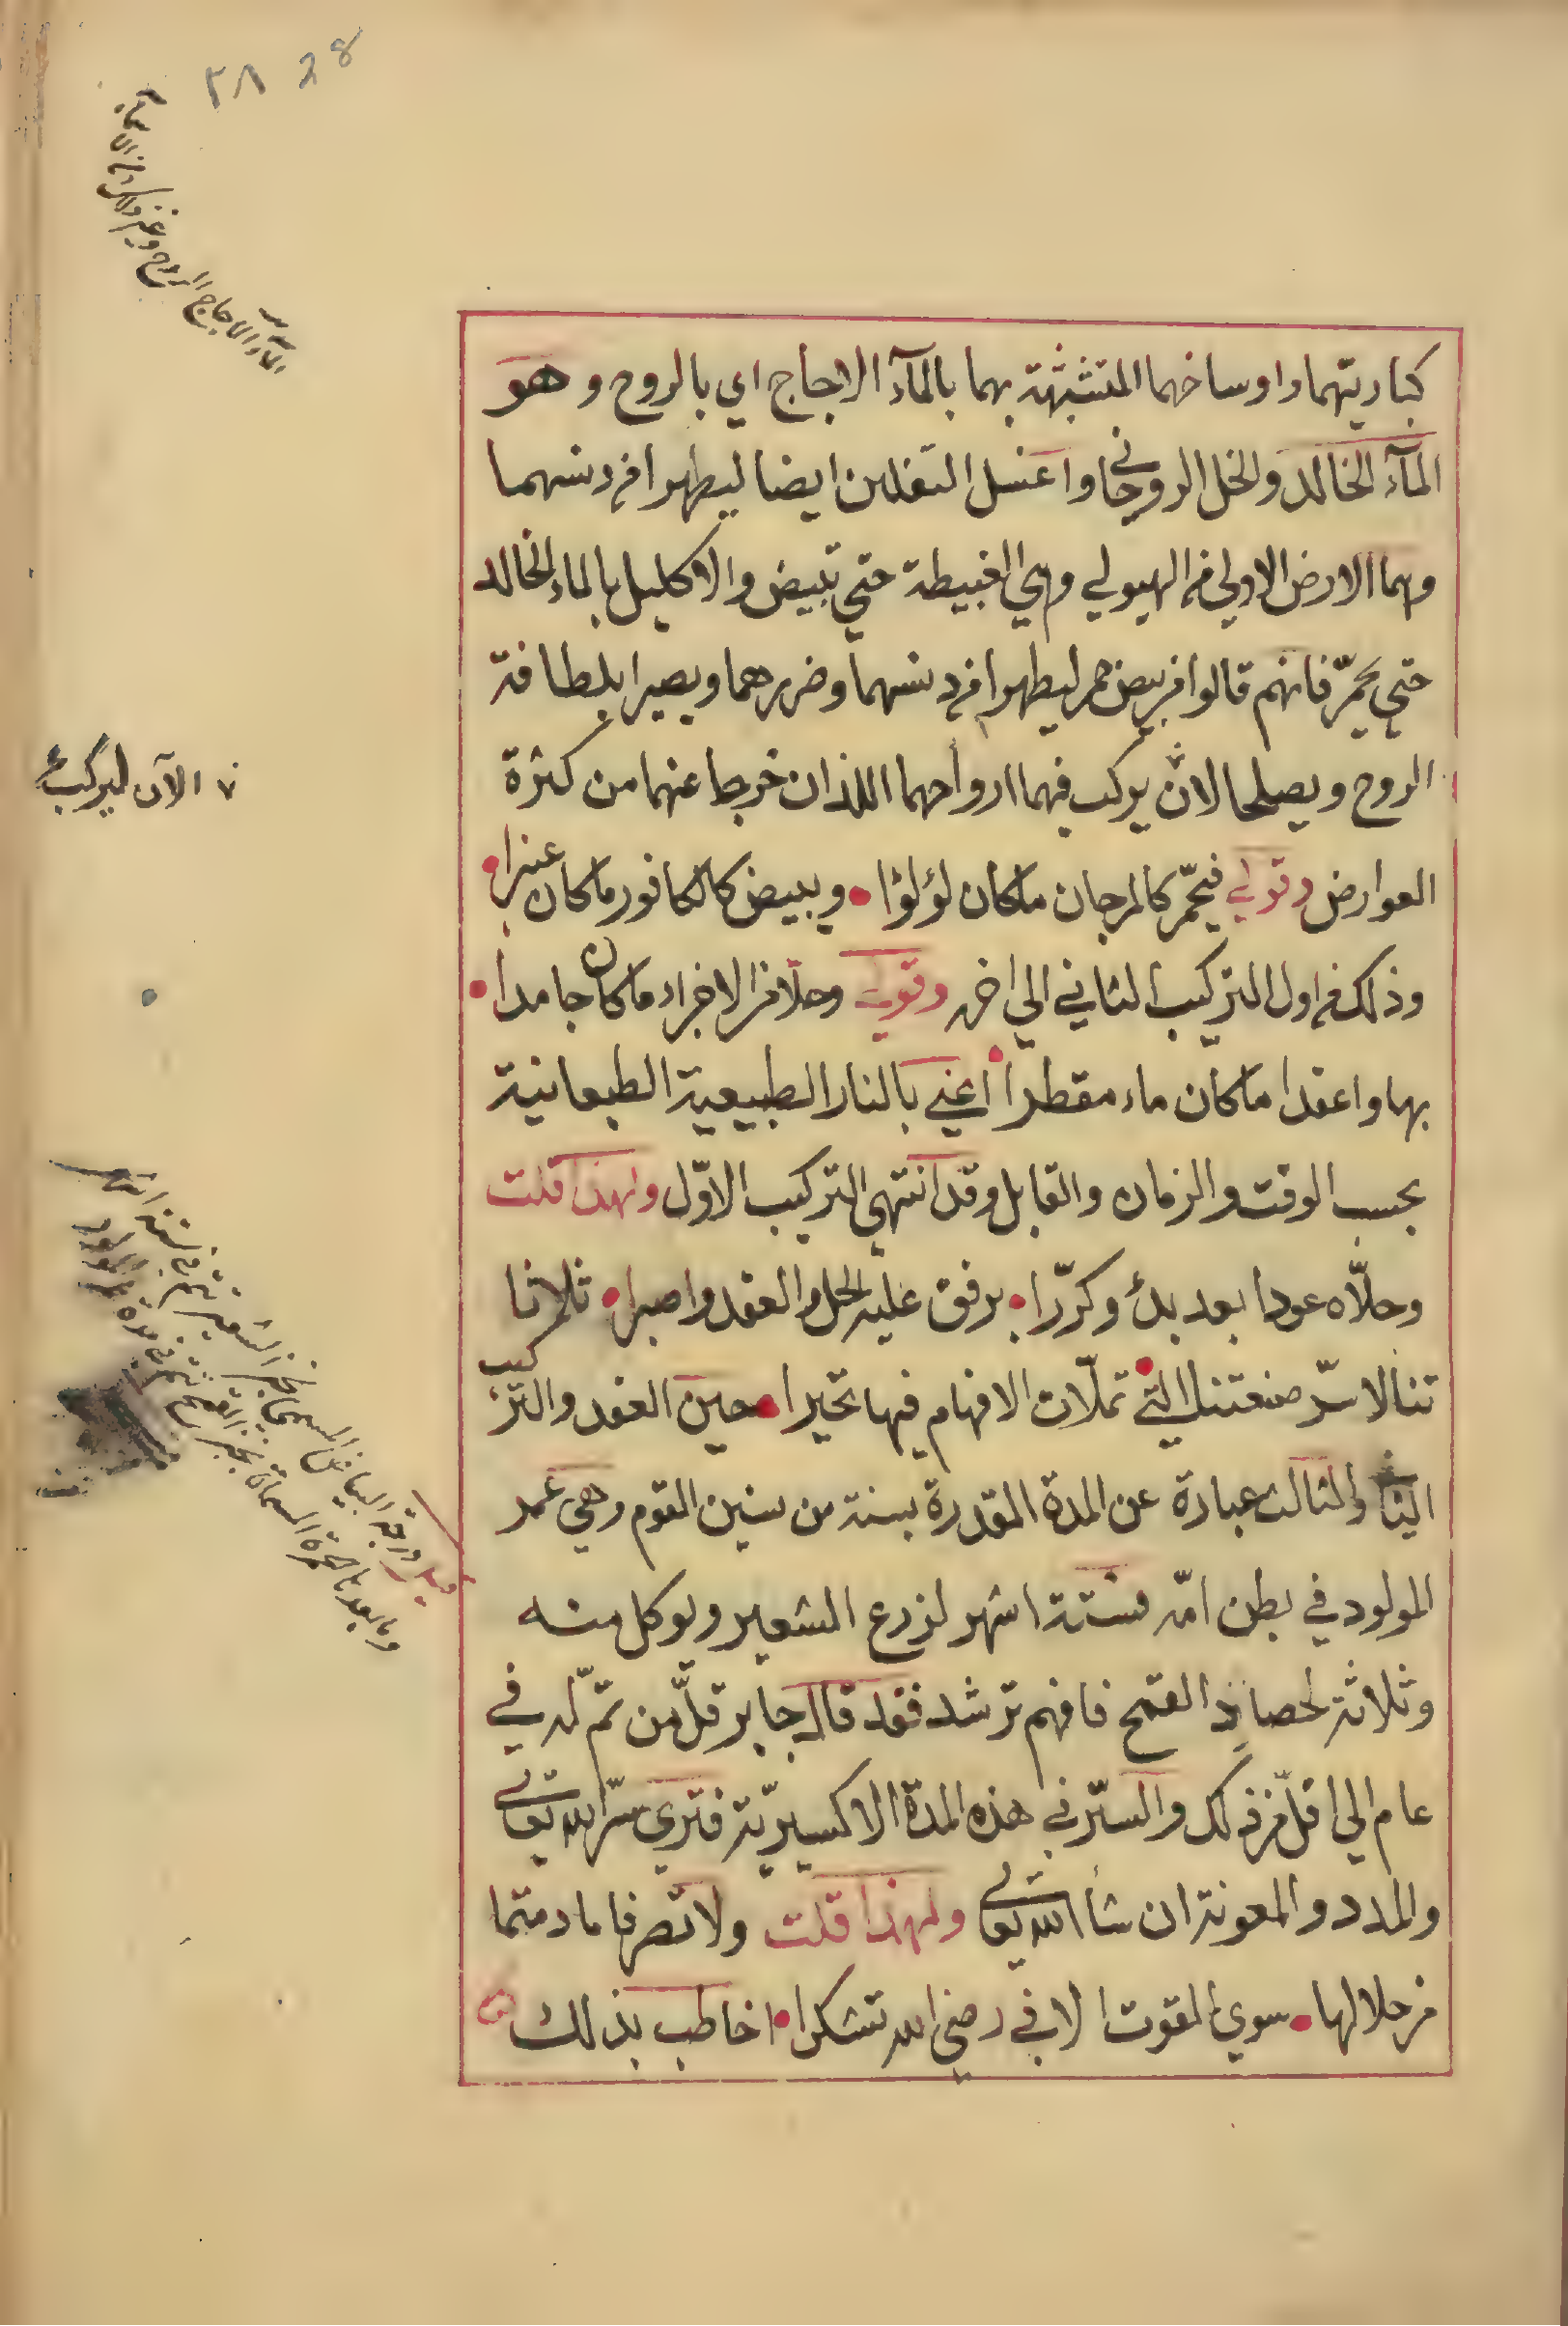 ٢٨ 28
كباريتهما واوساخهما المتشبثة بهما بالمآء الاجاج اي بالروح وهو
المآء الخالد والخل الروحاني واغسل الثفلين ايضا ليطهرا من دنسهما
وهما الارض الاولي من الهيولي وهي الغبيطة حتي تبيض والاكليل بالماء الخالد
حتي يحمرّ فانهم قالوا من بيض حمر ليطهرا من دنسهما وضررهما ويصيرا بلطافة
الروح ويصلحا لانّ يركب فيهما ارواحهما اللذان خرجا عنهما من كثرة
العوارض وقولي فيحمّر كالمرجان ماكان لؤلؤا • ويبيض كالكافور ماكان عنبرا •
وذلك من اول التركيب الثاني الي اخره وقولي وحلّا من الاجزاء ماكان جامدا •
بها واعقدا ماكان ماء مقطرا • اعني بالنار الطبيعية الطبعانية
بحسب الوقت والزمان والقابل وقد انتهي التركيب الاوّل ولهذا قلت
وحلّاه عودا بعد بدئ وكررّا • برفق عليه الحل والعقد واصبرا • ثلاثا
تنالا سرّ صنعتنا التي • تملّات الافهام فيها تحيرا • حين العقد والتركيب
الثاني والثالث عبارة عن المدة المقدرة بسنة من سنين القوم وهي عمر
المولود في بطن امّه فستة اشهر لزرع الشعير ويوكل منه
وثلاثة لحصاد القمح فافهم ترشد فقد قال جابر قلّ من تمّ له في
عام الي اقلّ من ذلك والسرّ في هذه المدة الاكسيريّة فتري سرّ الله تعالي
والمدد والمعونة ان شأ الله تعالي ولهذا قلت ولا تصرفا ما دمتما
من حلالها • سوي القوت الا في رضي الله تشكرا • اخاطب بذلك
المآء الاجاج الروح وغيره
٧ الآن ليركب